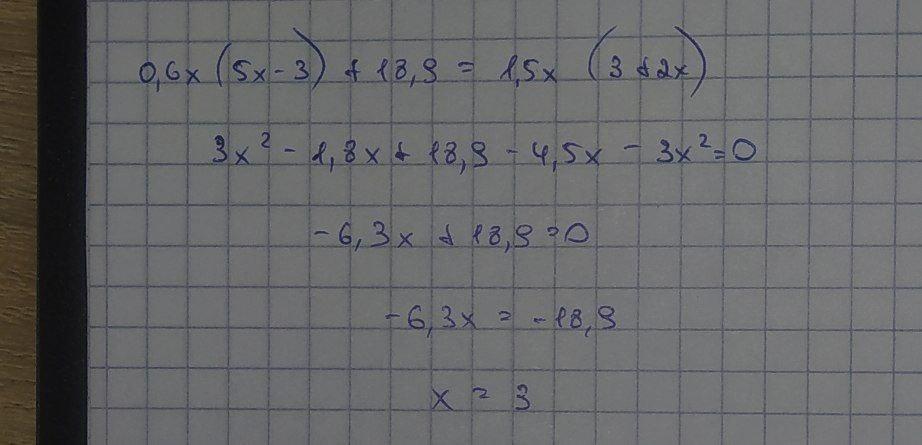 0,6x (5x - 3) + 18,9 = 1,5x (3 + 2x)
3x² - 1,8x + 18,9 - 4,5x - 3x² = 0
-6,3x + 18,9 = 0
-6,3x = -18,9
x = 3